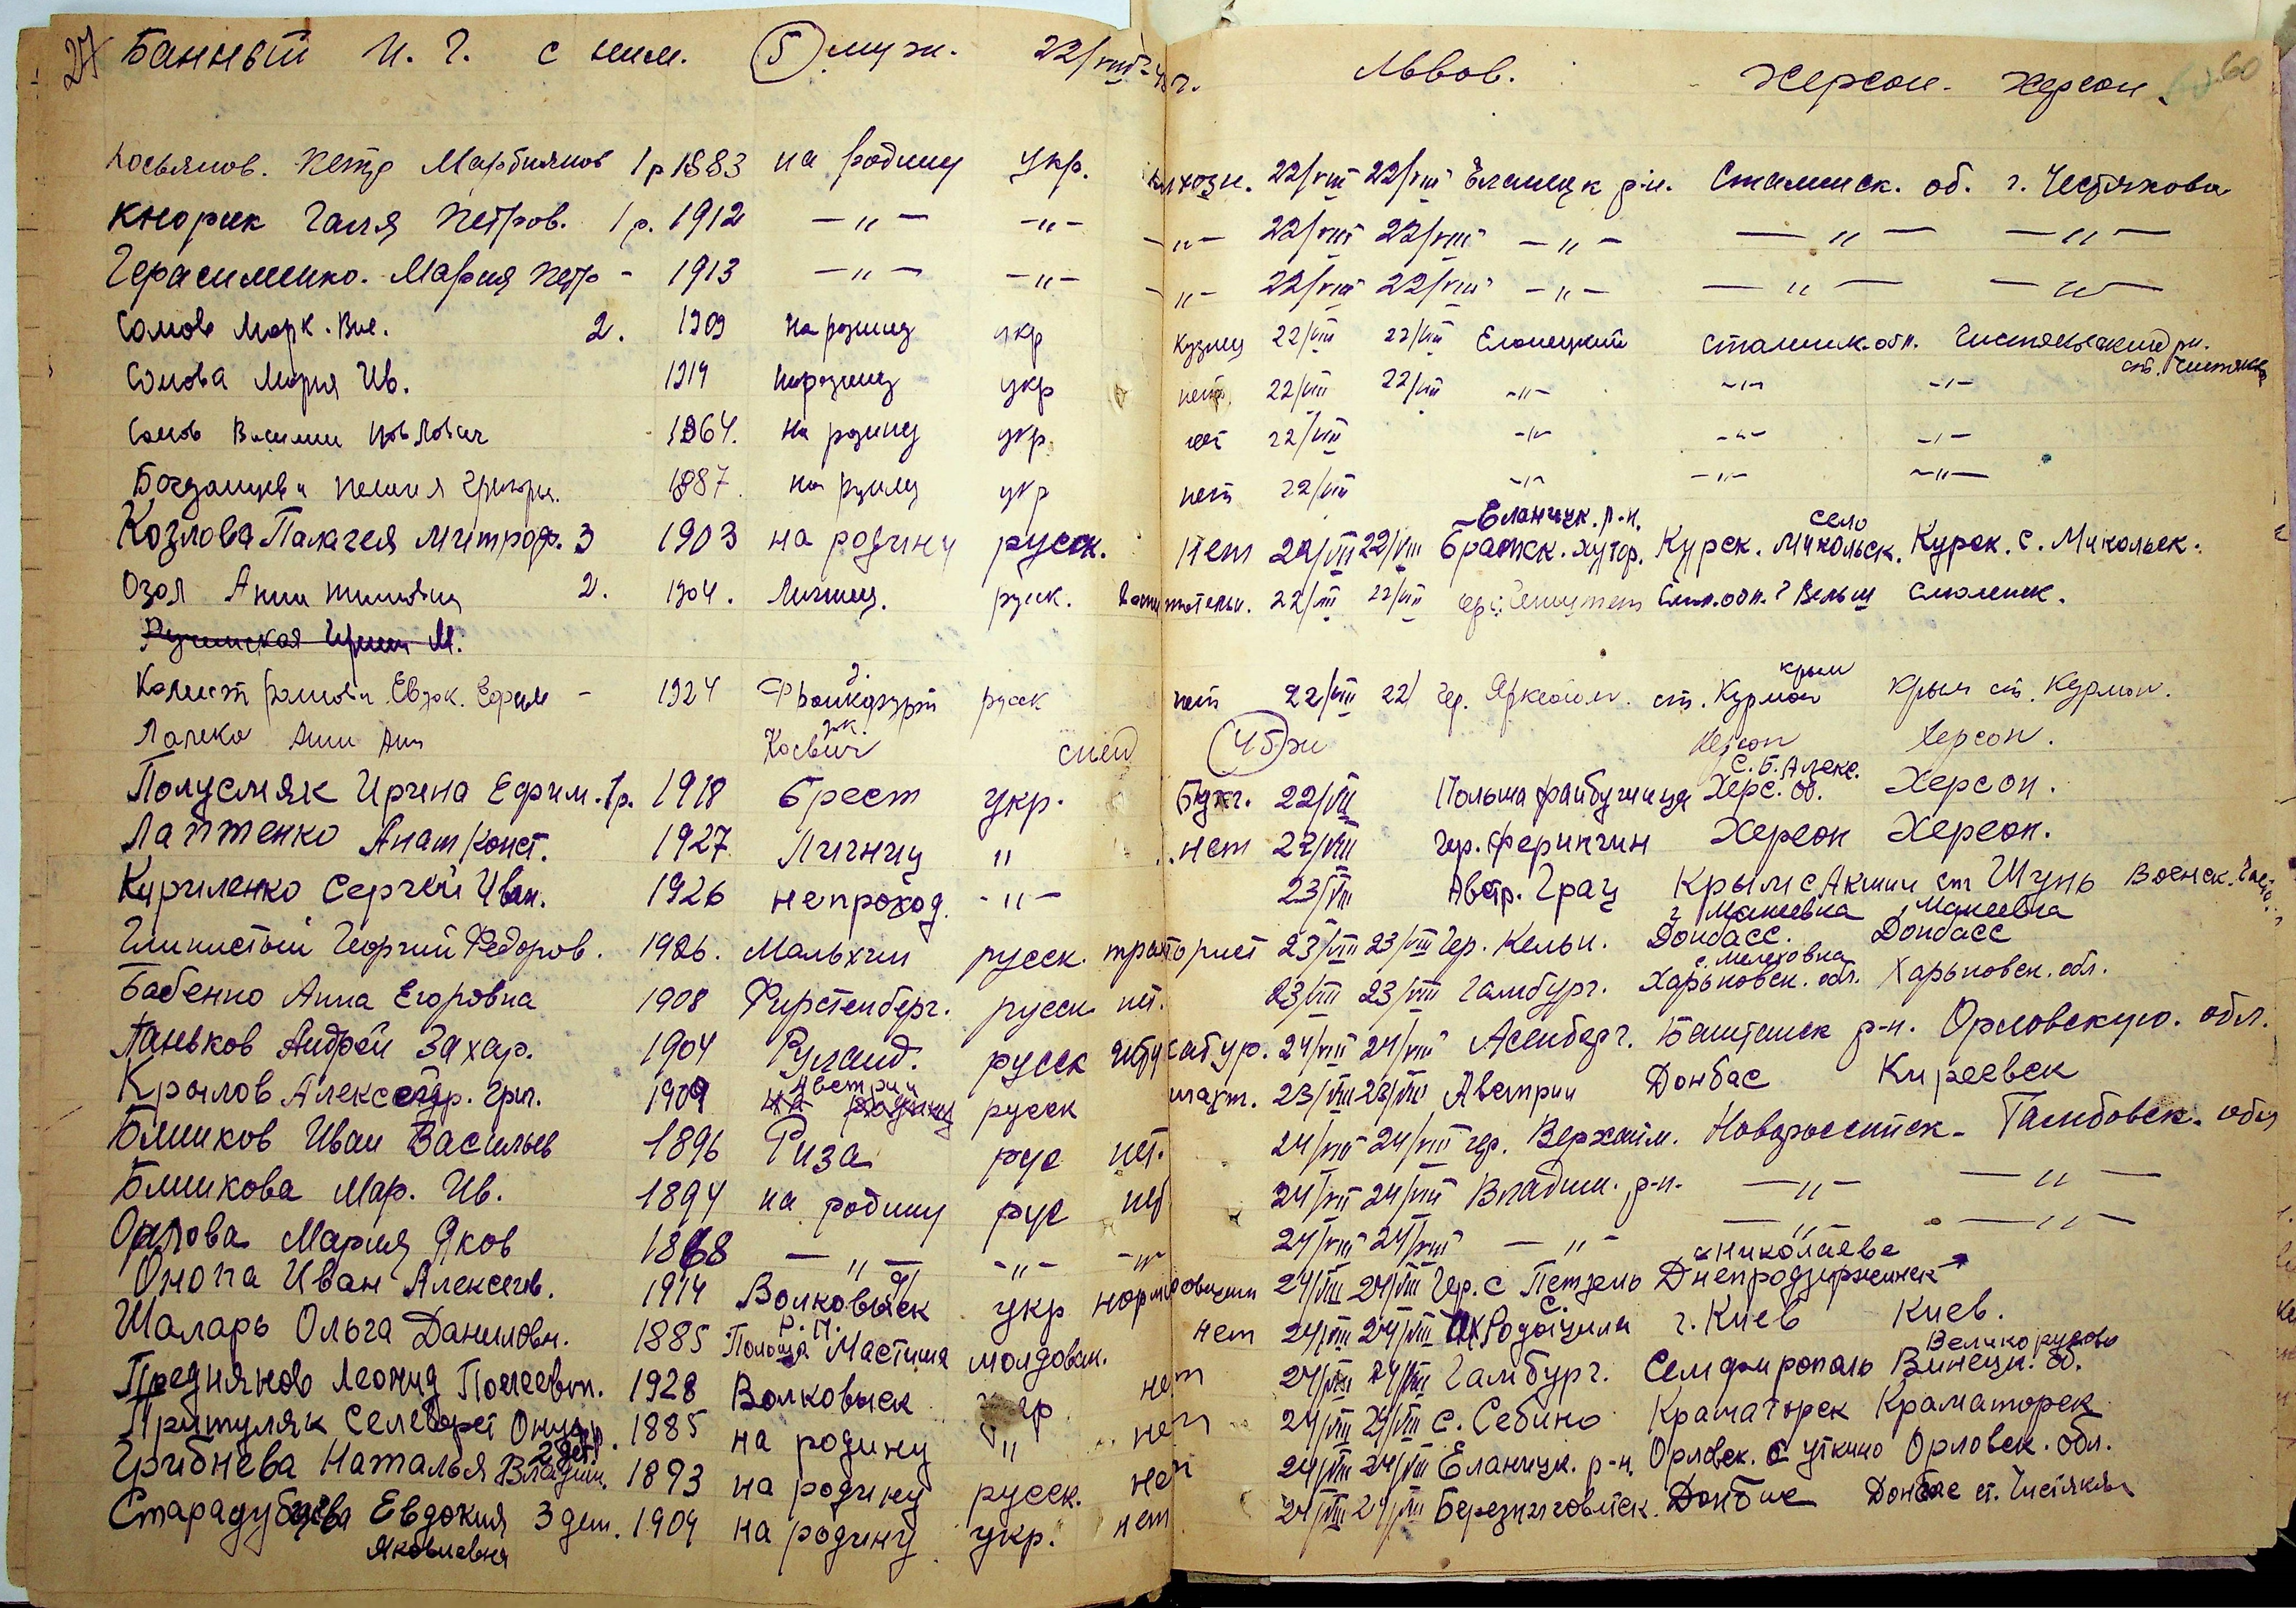 27 Банный И. Г. с ним. 5 муж. 22/VIII-45г. Львов. Херсон. Херсон. 60
Косьянов. Петр 1р 1883 на родину укр. 22/VIII 22/VIII Еланецк р-н. Сталинск. об. г. Честякова
Кнорик Галя Петров. 1р. 1912 —„— —„— —„— 22/VIII 22/VIII —„— —„— —„—
Герасименко. Мария Петр - 1913 —„— —„— —„— 22/VIII 22/VIII —„— —„— —„—
Сомов Марк. Вас. 2. 1909 на родину укр кузнец 22/VIII 22/VIII Еланецкий Сталинск. обл. рн.
ст. Чистяков
Сомова Мария Ив. 1919 на родину укр нет 22/VIII 22/VIII -„- -„- -„-
Сомов Василий 1864. на родину укр нет 22/VIII -„- -„- -„-
1887. на родину укр нет 22/VIII -„- -„- -„-
Еланецк. р-н. село
Козлова Палагея Митроф. 3 1903 на родину русск. нет 22/VIII 22/VIII Братск. хутор. Курск. Микольск. Курск. с. Микольск.
Озол Анна 2. 1904. Лигниц. русск. 22/VIII 22/VIII Смол. обл. г Вельш Смоленск.
М.
Крым
Евдк. Ефим - 1924 Франкфурт русск нет 22/VIII 22/ гер. ст. Курман Крым ст. Курман.
Анна 45 Херсон Херсон.
с. Б. Алекс.
Полусмяк Ирина Ефим. 1р. 1918 Брест укр. Бухг. 22/VIII Польша Херс. об. Херсон.
Лаптенко Анат Конст. 1927 Лигниц „ нет 22/VIII гер. Ферингин Херсон Херсон.
Куриленко Сергей Иван. 1926 непроход. -„- 23/VIII Австр. Грац Крым с Акшин ст Шунь Военск. часть
г Макеевка Макеевка
Глинистый Георгий Федоров. 1926. Мальхин русск. тракторист 23/VIII 23/VIII гер. Кельн. Донбасс. Донбасс
с. Мелеховка
Бабенко Анна Егоровна 1908 Фирстенберг. русск нет. 23/VIII 23/VIII Гамбург. Харьковск. обл. Харьковск. обл.
Паньков Андрей Захар. 1904 Руланд. русск штукатур. 24/VIII 24/VIII Асенберг. Баштанск р-н. Орловскую. обл.
Австрии
Крылов Александр. Григ. 1909 на родину русск шахт. 23/VIII 23/VIII Австрии Донбас Киреевск
Блинков Иван Васильев 1896 Риза рус нет. 24/VIII 24/VIII гер. Верхайм. Новороссийск- Тамбовск. обл
Блинкова Мар. Ив. 1894 на родину рус нет 24/VIII 24/VIII Владим. р-н. —„— —„—
Орлова Мария Яков 1868 —„— -„- -„- 24/VIII 24/VIII —„— —„— —„—
с Николаева
Онопа Иван Алексеев. 1914 Волковыск укр нормировщик 24/VIII 24/VIII Гер. с Петзель Днепродзержинск
Шаларь Ольга Даниловн. 1885 Польша Мастиша молдован. нет 24/VIII 24/VIII г. Киев Киев.
Великорусово
Преднянов Леонид 1928 Волковыск укр нет 24/VIII 24/VIII Гамбург. Семфирополь Винецк. об.
Притуляк Селеверст Онуфр. 1885 на родину „ нет 24/VIII 24/VIII с. Себино Краматорск Краматорск
2 дет.
Грибнева Наталья Владим. 1893 на родину русск. нет 24/VIII 24/VIII Еланецк. р-н. Орловск. с Уткино Орловск. обл.
Старадубцева Евдокия 3 дет. 1904 на родину укр. нет 24/VIII 24/VIII Березниговатск. Донбас Донбас ст. Чистяков
Яковлевна